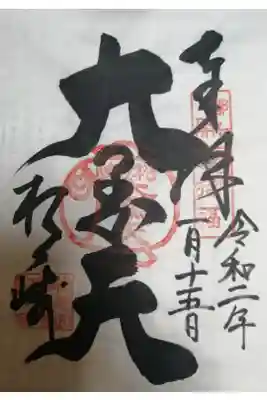 奉拝
令和二年
一月十五日
大黒天
松ヶ崎